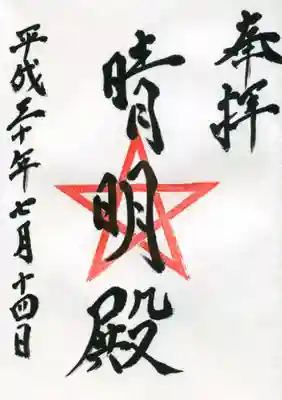 奉拝
晴明殿
平成三十年七月十四日